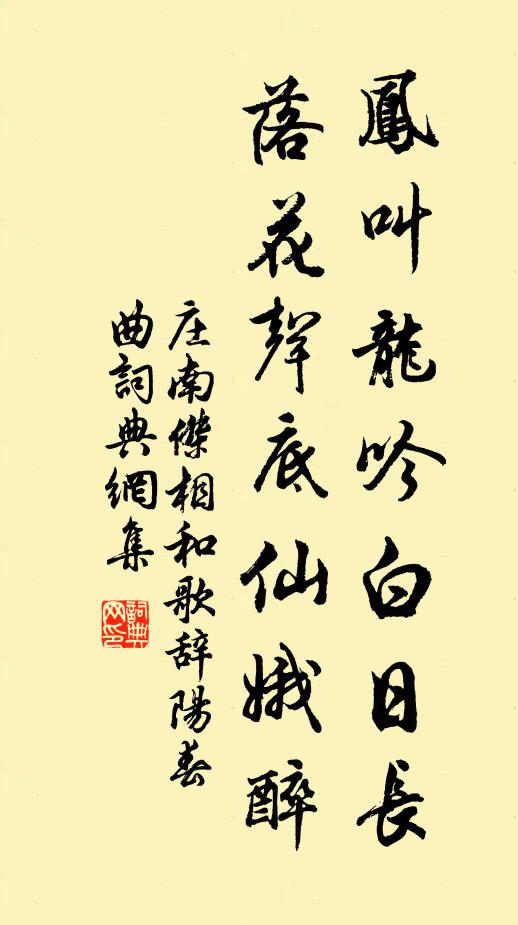 鳳叫龍吟白日長
落花聲底仙娥醉
庄南傑相和歌辞陽春
曲詞典網集
詞典
网印